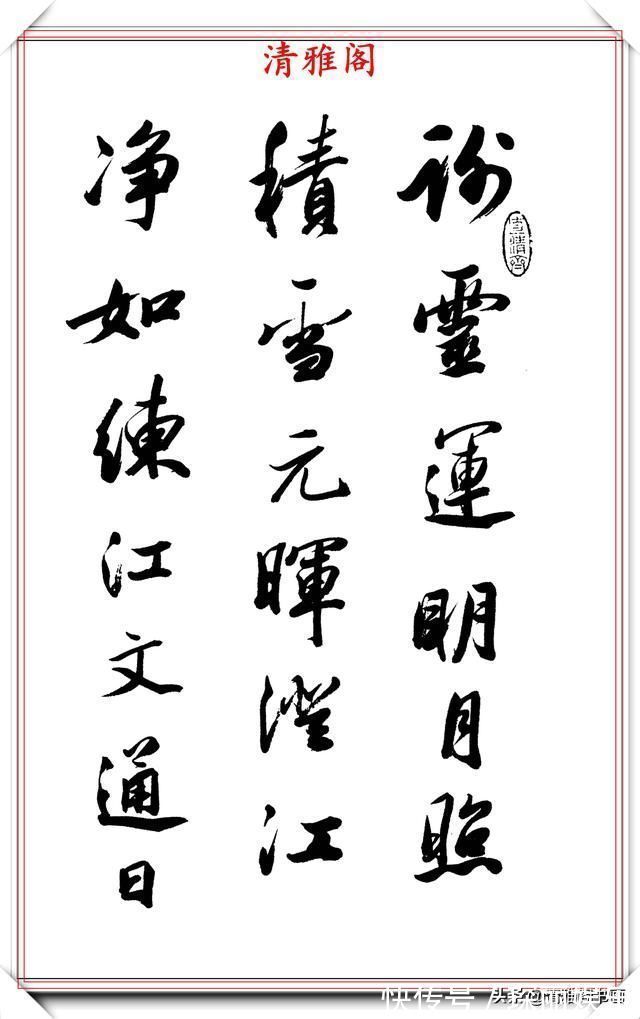 清雅阁
谢灵運明月照
積雪元暉澄江
净如練江文通日
快传号